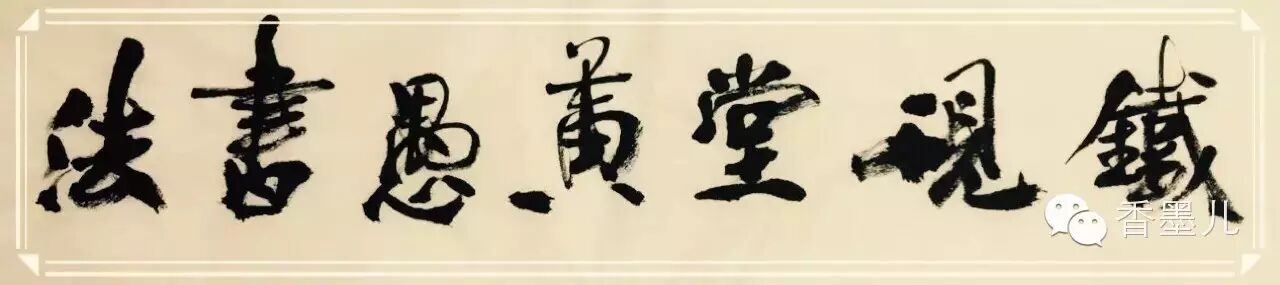 鐵硯堂黄愚書法
香墨儿